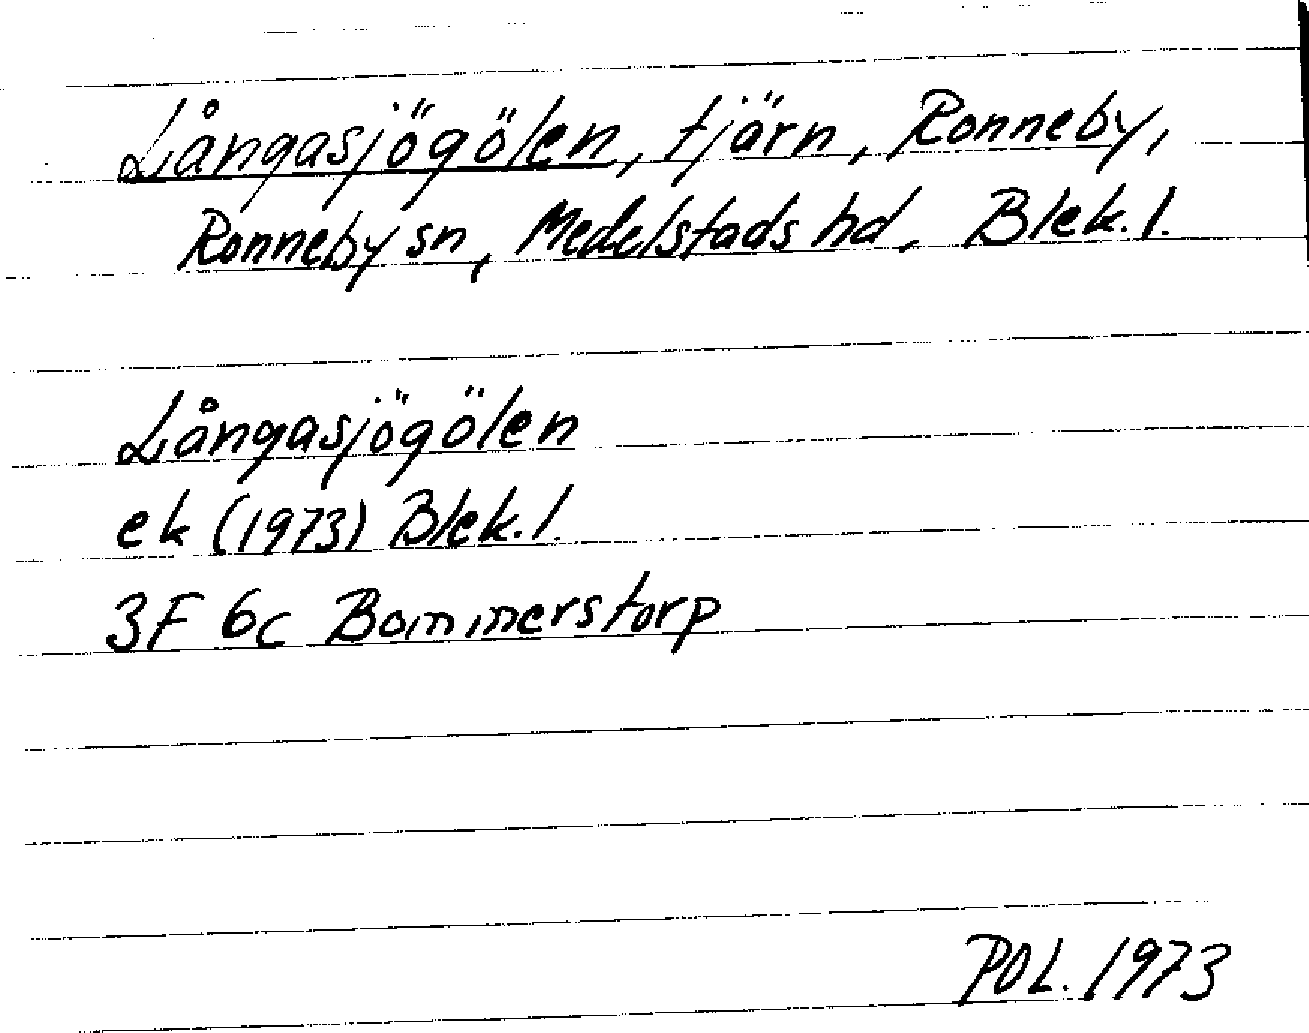 Långasjögölen, tjärn, Ronneby,
Ronneby sn, Medelstads hd, Blek. l.
Långasjögölen
ek (1973) Blek. l.
3F 6c Bommerstorp
POL. 1973